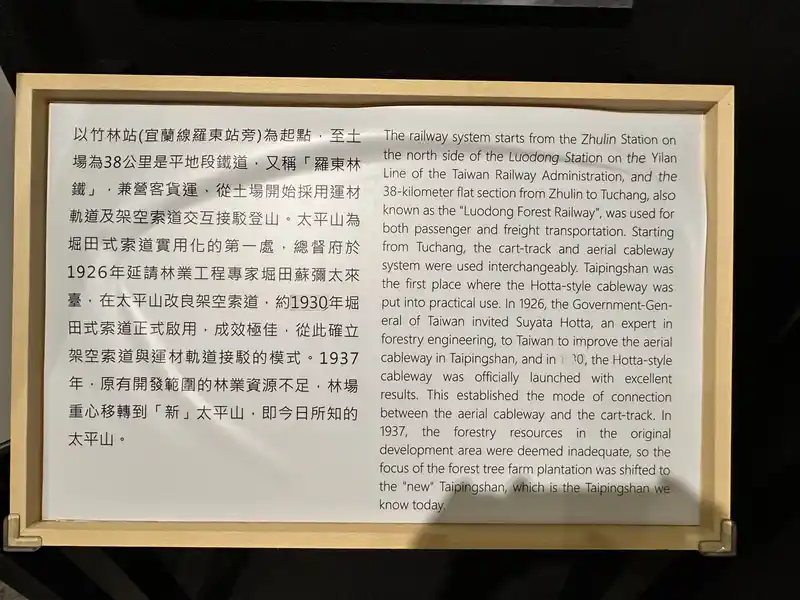 以竹林站(宜蘭線羅東站旁)為起點，至土
場為38公里是平地段鐵道，又稱「羅東林
鐵」，兼營客貨運，從土場開始採用運材
軌道及架空索道交互接駁登山。太平山為
堀田式索道實用化的第一處，總督府於
1926年延請林業工程專家堀田蘇彌太來
臺，在太平山改良架空索道，約1930年堀
田式索道正式啟用，成效極佳，從此確立
架空索道與運材軌道接駁的模式。1937
年，原有開發範圍的林業資源不足，林場
重心移轉到「新」太平山，即今日所知的
太平山。
The railway system starts from the Zhulin Station on
the north side of the Luodong Station on the Yilan
Line of the Taiwan Railway Administration, and the
38-kilometer flat section from Zhulin to Tuchang, also
known as the "Luodong Forest Railway", was used for
both passenger and freight transportation. Starting
from Tuchang, the cart-track and aerial cableway
system were used interchangeably. Taipingshan was
the first place where the Hotta-style cableway was
put into practical use. In 1926, the Government-Gen-
eral of Taiwan invited Suyata Hotta, an expert in
forestry engineering, to Taiwan to improve the aerial
cableway in Taipingshan, and in the Hotta-style
cableway was officially launched with excellent
results. This established the mode of connection
between the aerial cableway and the cart-track. In
1937, the forestry resources in the original
development area were deemed inadequate, so the
focus of the forest tree farm plantation was shifted to
the "new" Taipingshan, which is the Taipingshan we
know today.